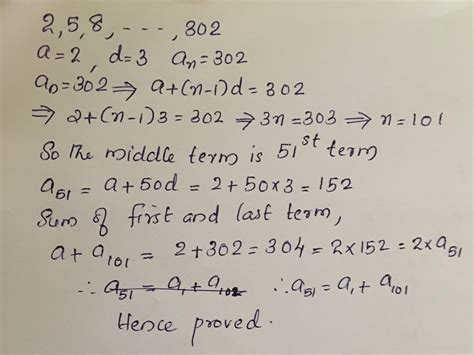 2,5,8, - - - , 302
a=2 , d=3 aₙ=302
aₙ=302 ⇒ a+(n-1)d=302
⇒ 2+(n-1)3=302 ⇒ 3n=303 ⇒ n=101
So the middle term is 51ˢᵗ term
a₅₁ = a+50d = 2+50×3 = 152
Sum of first and last term,
a+a₁₀₁ = 2+302=304=2×152=2×a₅₁
∴ a₅₁ = a₁+a₁₀₂ ∴ a₅₁=a₁+a₁₀₁
Hence proved.